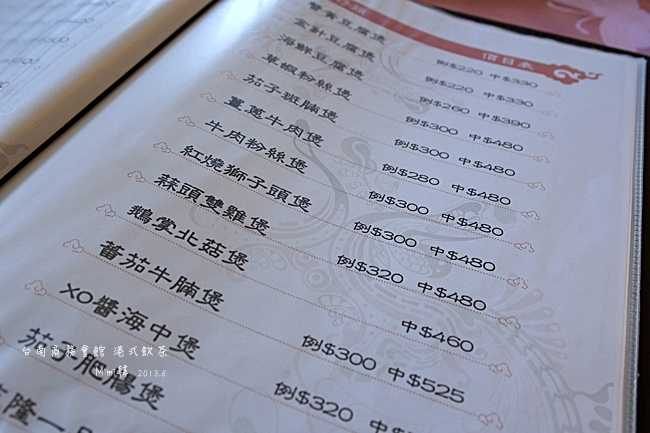 價目表
蟹黃豆腐煲 例$220 中$330
豆腐煲 例$220 中$330
海鮮豆腐煲 例$260 中$390
草蝦粉絲煲 例$300 中$480
茄子斑腩煲 例$300 中$480
薑蔥牛肉煲 例$280 中$480
牛肉粉絲煲 例$300 中$480
紅燒獅子頭煲 例$300 中$480
蒜頭雙雞煲 例$320 中$480
鵝掌北菇煲 中$460
蕃茄牛腩煲 例$300 中$525
XO醬海中煲 例$320
茄子肥腸煲
台南商務會館 港式飲茶
Mimi韓 2013.5